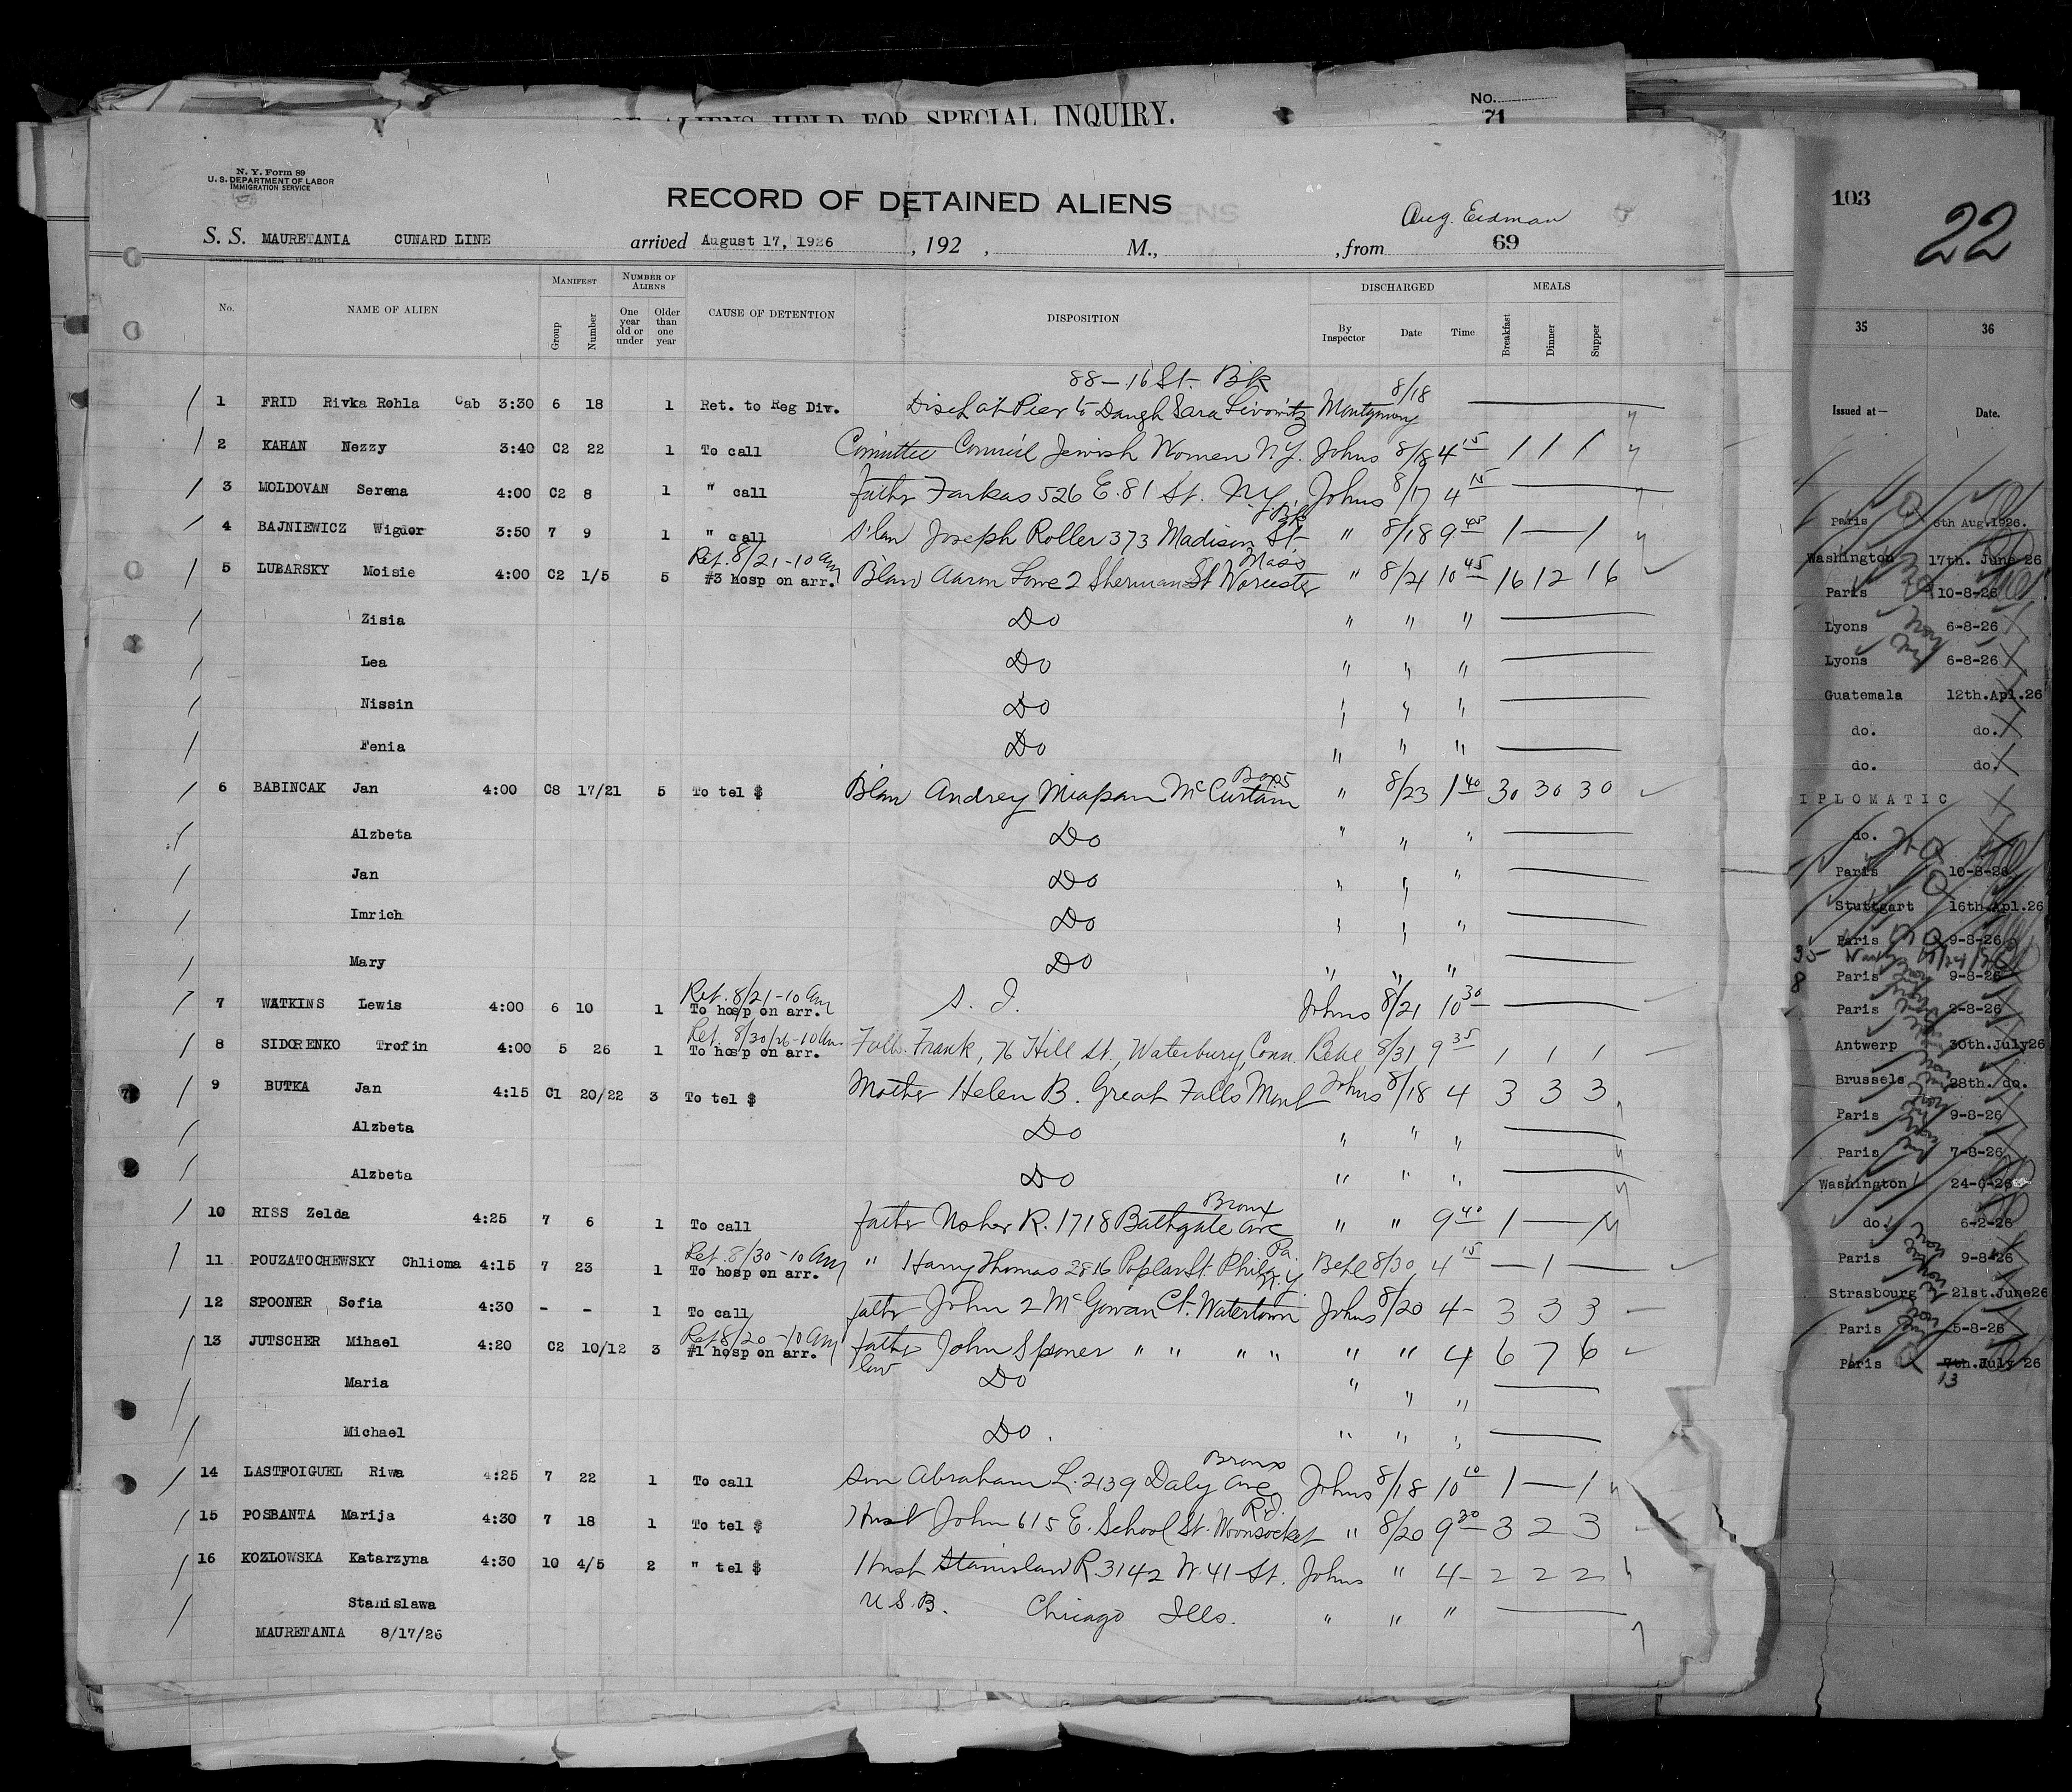 OF ALIENS HELD FOR SPECIAL INQUIRY.
No.
71
N. Y. Form 89
U. S. DEPARTMENT OF LABOR
IMMIGRATION SERVICE
RECORD OF DETAINED ALIENS
Aug. Eidman
S. S. MAURETANIA CUNARD LINE arrived August 17, 1926, 192 , M., , from 69
No. NAME OF ALIEN MANIFEST NUMBER OF ALIENS CAUSE OF DETENTION DISPOSITION DISCHARGED MEALS
Group Number One year old or under Older than one year By Inspector Date Time Breakfast Dinner Supper
88 - 16 St. Bk
1 FRID Rivka Rohla Cab 3:30 6 18 1 Ret. to Reg Div. Disch at Pier to Daugh Sara Livowitz Montgomery 8/18
2 KAHAN Nezzy 3:40 C2 22 1 To call Committee Council Jewish Women N.Y. Johns 8/18 4 15 1 1 1
3 MOLDOVAN Serena 4:00 C2 8 1 " call father Farkas 526 E. 81 St. N.Y. Johns 8/17 4 15
4 BAJNIEWICZ Wigder 3:50 7 9 1 " call s'law Joseph Roller 373 Madison St. " 8/18 9 45 1 — 1
Ret. 8/21-10 am Mass
5 LUBARSKY Moisie 4:00 C2 1/5 5 #3 hosp on arr. B'law Aaron Lowe 2 Sherman St Worcester " 8/21 10 45 16 12 16
Zisia Do " " "
Lea Do " " "
Nissin Do " " "
Fenia Do " " "
6 BABINCAK Jan 4:00 C8 17/21 5 To tel $ B'law Andrey McCurtain Box 5 " 8/23 1 40 30 30 30
Alzbeta Do " " "
Jan Do " " "
Imrich Do " " "
Mary Do " " "
Ret. 8/21-10 am
7 WATKINS Lewis 4:00 6 10 1 To hosp on arr. S. I. Johns 8/21 10 30
Ret. 8/30/26-10 am
8 SIDORENKO Trofin 4:00 5 26 1 To hosp on arr. Fath. Frank, 76 Hill St., Waterbury, Conn. 8/31 9 35 1 1 1
9 BUTKA Jan 4:15 C1 20/22 3 To tel $ Mother Helen B. Great Falls Mont Johns 8/18 4 3 3 3
Alzbeta Do " " "
Alzbeta Do " " "
Bronx
10 RISS Zelda 4:25 7 6 1 To call father Noher R. 1718 Bathgate Ave " " 9 40 1 — 1
Ret. 8/30-10 am Pa.
11 POUZATOCHEWSKY Chlioma 4:15 7 23 1 To hosp on arr. " Harry Thomas 2816 Poplar St. Phila 8/30 4 15 — 1 —
N.Y.
12 SPOONER Sofia 4:30 - - 1 To call father John 2 McGowan Ct. Watertown Johns 8/20 4- 3 3 3
Ret 8/20-10 am
13 JUTSCHER Mihael 4:20 C2 10/12 3 #1 hosp on arr. father law John Spooner " " " " " " 4 6 7 6
Maria Do " " "
Michael Do. " " "
Bronx
14 LASTFOIGUEL Riwa 4:25 7 22 1 To call son Abraham L. 2139 Daly Ave Johns 8/18 10 10 1 — 1
R.I.
15 POSBANTA Marija 4:30 7 18 1 To tel $ Husb John 615 E. School St. Woonsocket " 8/20 9 30 3 2 3
16 KOZLOWSKA Katarzyna 4:30 10 4/5 2 " tel $ Husb Stanislaw R. 3142 W. 41 St. Johns " 4- 2 2 2
Stanislawa U.S.B. Chicago Ills. " " "
MAURETANIA 8/17/26
103
22
35 36
Issued at— Date.
Paris 6th Aug.1926.
Washington 17th. June 26
Paris 10-8-26
Lyons 6-8-26
Lyons 6-8-26
Guatemala 12th.Apl.26
do. do.
do. do.
IPLOMATIC
do.
Paris 10-8-26
Stuttgart 16th.Apl.26
Paris 9-8-26
35
8 Paris 9-8-26
Paris 2-8-26
Antwerp 30th.July26
Brussels 28th. do.
Paris 9-8-26
Paris 7-8-26
Washington 24-6-26
do. 6-2-26
Paris 9-8-26
Strasbourg 21st.June26
Paris 5-8-26
Paris 7th.July 26
13